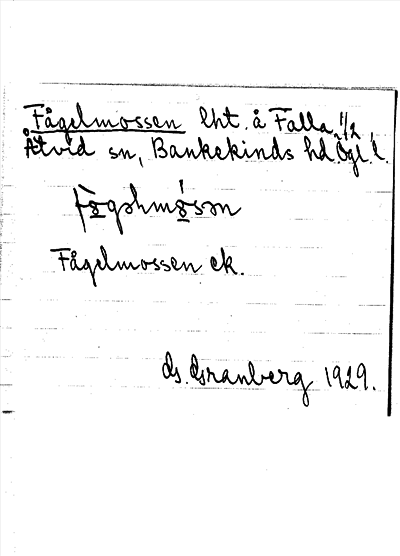 Fågelmossen lht. å Falla, 1/2
Åtvid sn, Bankekinds hd. Ögl. l.
Fågelmossen ek.
G. Granberg 1929.